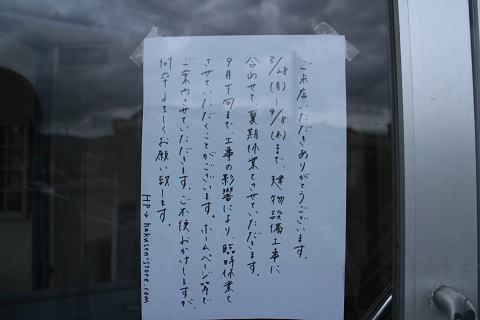 ご来店いただきありがとうございます。
8/28(月)〜9/8(木)まで、建物設備工事に
合わせて、夏期休業とさせていただきます。
9月下旬まで、工事の影響により、臨時休業と
させていただくことがございます。ホームページ等で
ご案内させていただきます。ご不便おかけしますが、
何卒よろしくお願い致します。
HP→hakusen-store.com